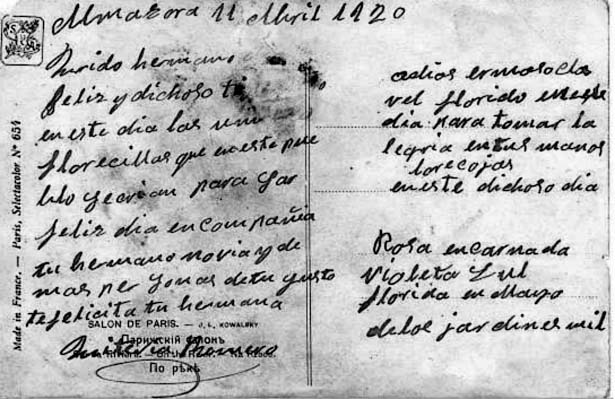 Almazora 11 Abril 1920
hermano
feliz y dichoso tú
en este dia las
florecillas que en este pue
blo se crian para
feliz dia en compañia
tu hermano novia y de
mas personas de tu gusto
te felicita tu hermana
Romero
adios ermoso cla
vel florido en este
dia para tomar la
legria en tus manos
lo recojas
en este dichoso dia
Rosa encarnada
Violeta
florida en Mayo
de los jardines mil
Made in France. — Paris, Selectacolor Nº 654
SALON DE PARIS. — J. L. KOWALSKY
Парижскій салонъ
По рѣкѣ